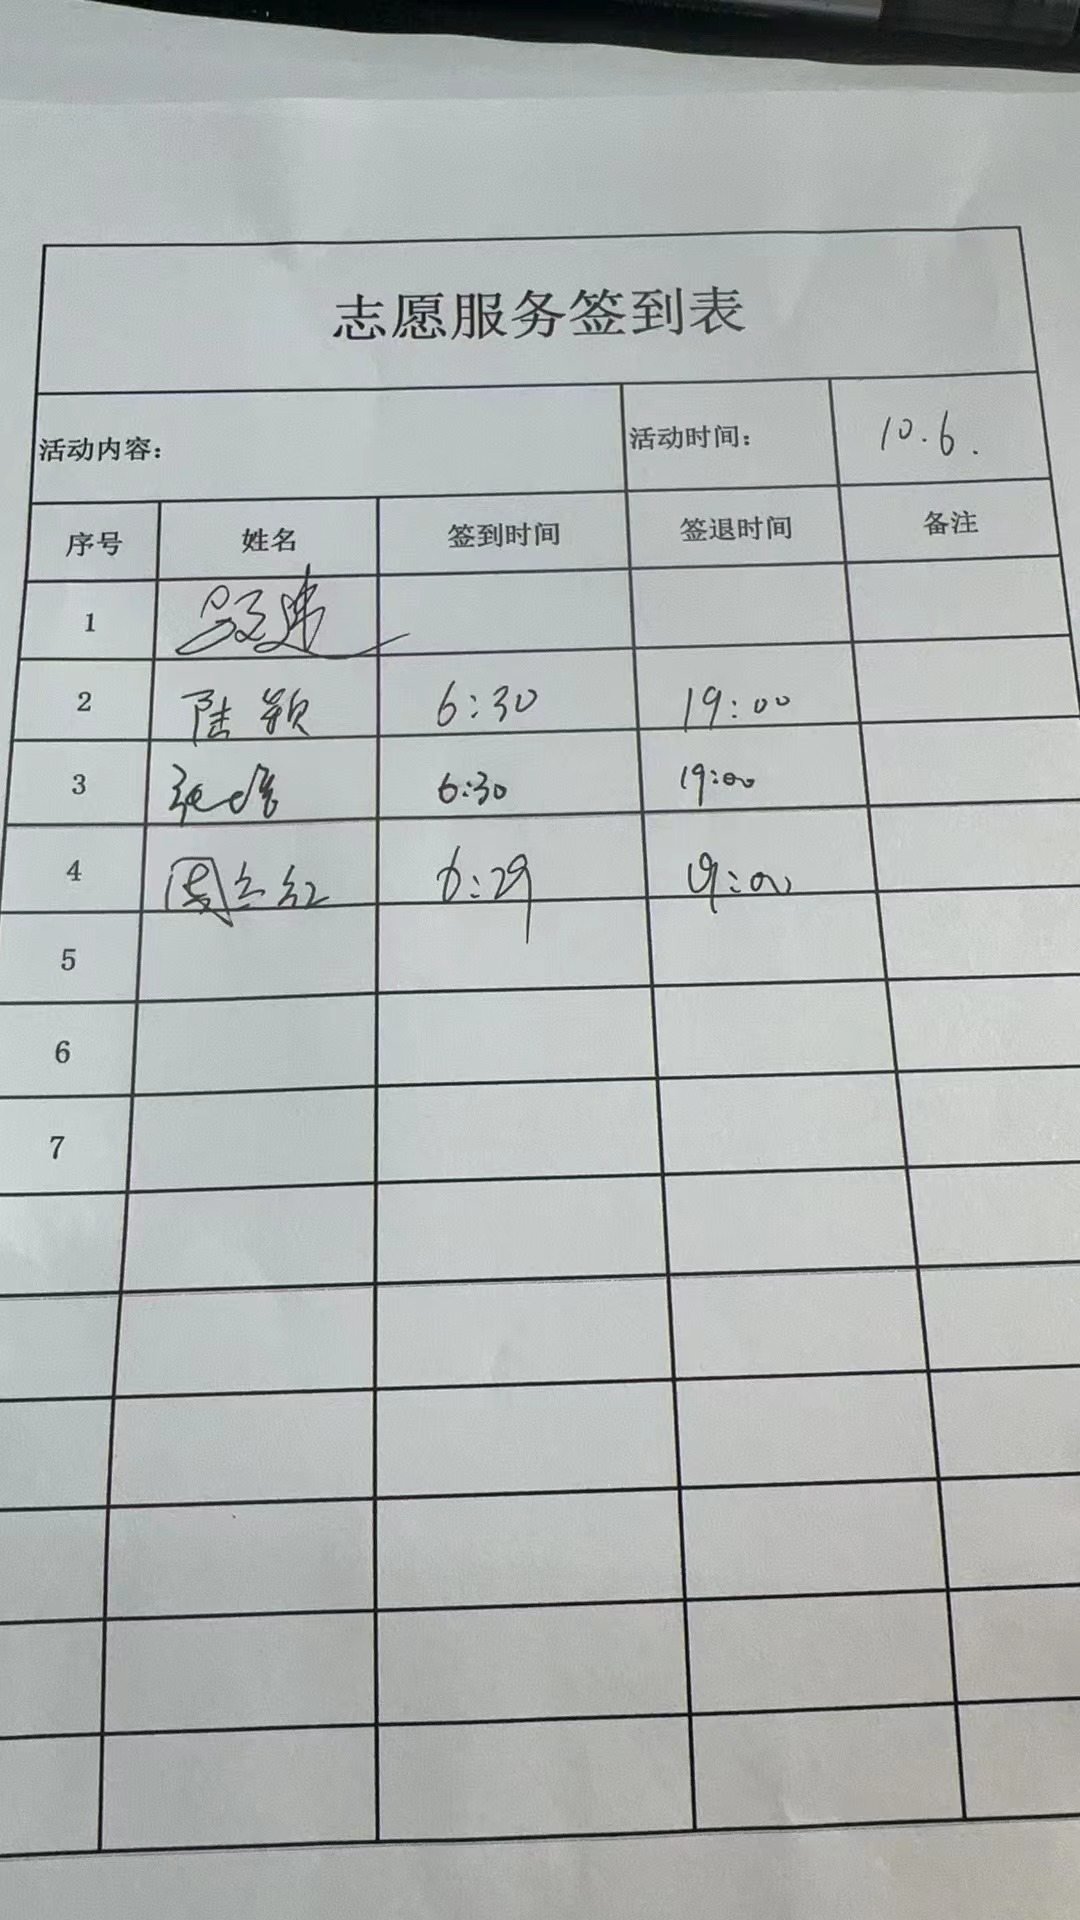 志愿服务签到表
活动内容： 活动时间： 10.6.
序号 姓名 签到时间 签退时间 备注
1
2 陆颖 6:30 19:00
3 张 6:30 19:00
4 周兰红 6:29 19:00
5
6
7